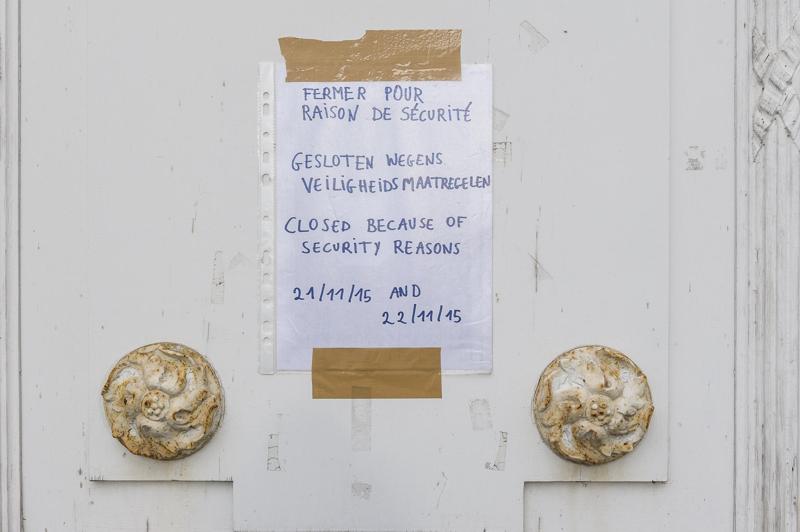 FERMER POUR
RAISON DE SÉCURITÉ
GESLOTEN WEGENS
VEILIGHEIDSMAATREGELEN
CLOSED BECAUSE OF
SECURITY REASONS
21/11/15 AND
22/11/15